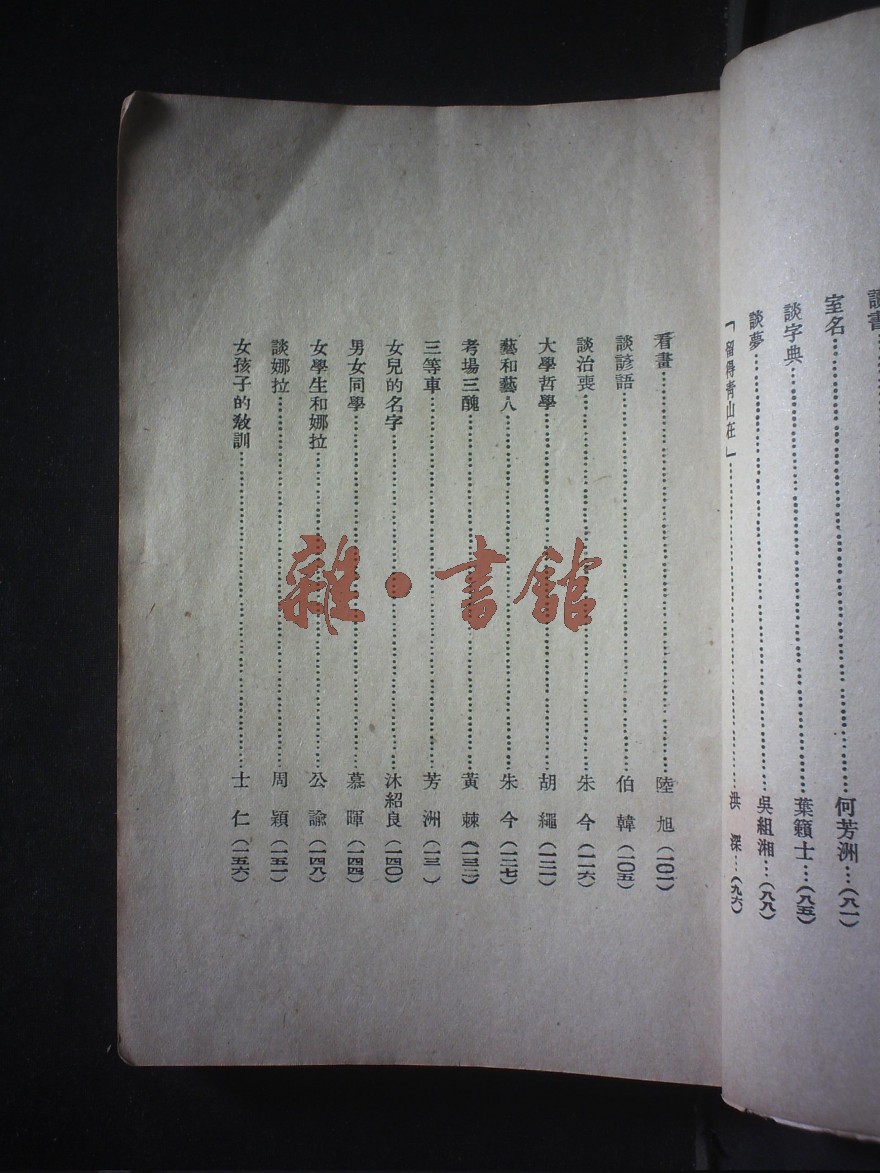 讀書
室名 何芳洲…(八一)
談字典 葉籟士…(八五)
談夢 吳組湘…(八八)
「留得青山在」 洪深…(九六)
看畫 陸旭(一〇一)
談諺語 伯韓(一〇五)
談治喪 朱今(一一六)
大學哲學 胡繩(一二二)
藝和藝人 朱今(一二七)
考場三醜 黃棘(一三二)
三等車 芳洲(一三 )
女兒的名字 沐紹良(一四〇)
男女同學 慕暉(一四四)
女學生和娜拉 公諭(一四八)
談娜拉 周穎(一五一)
女孩子的教訓 士仁(一五六)
雜·書館